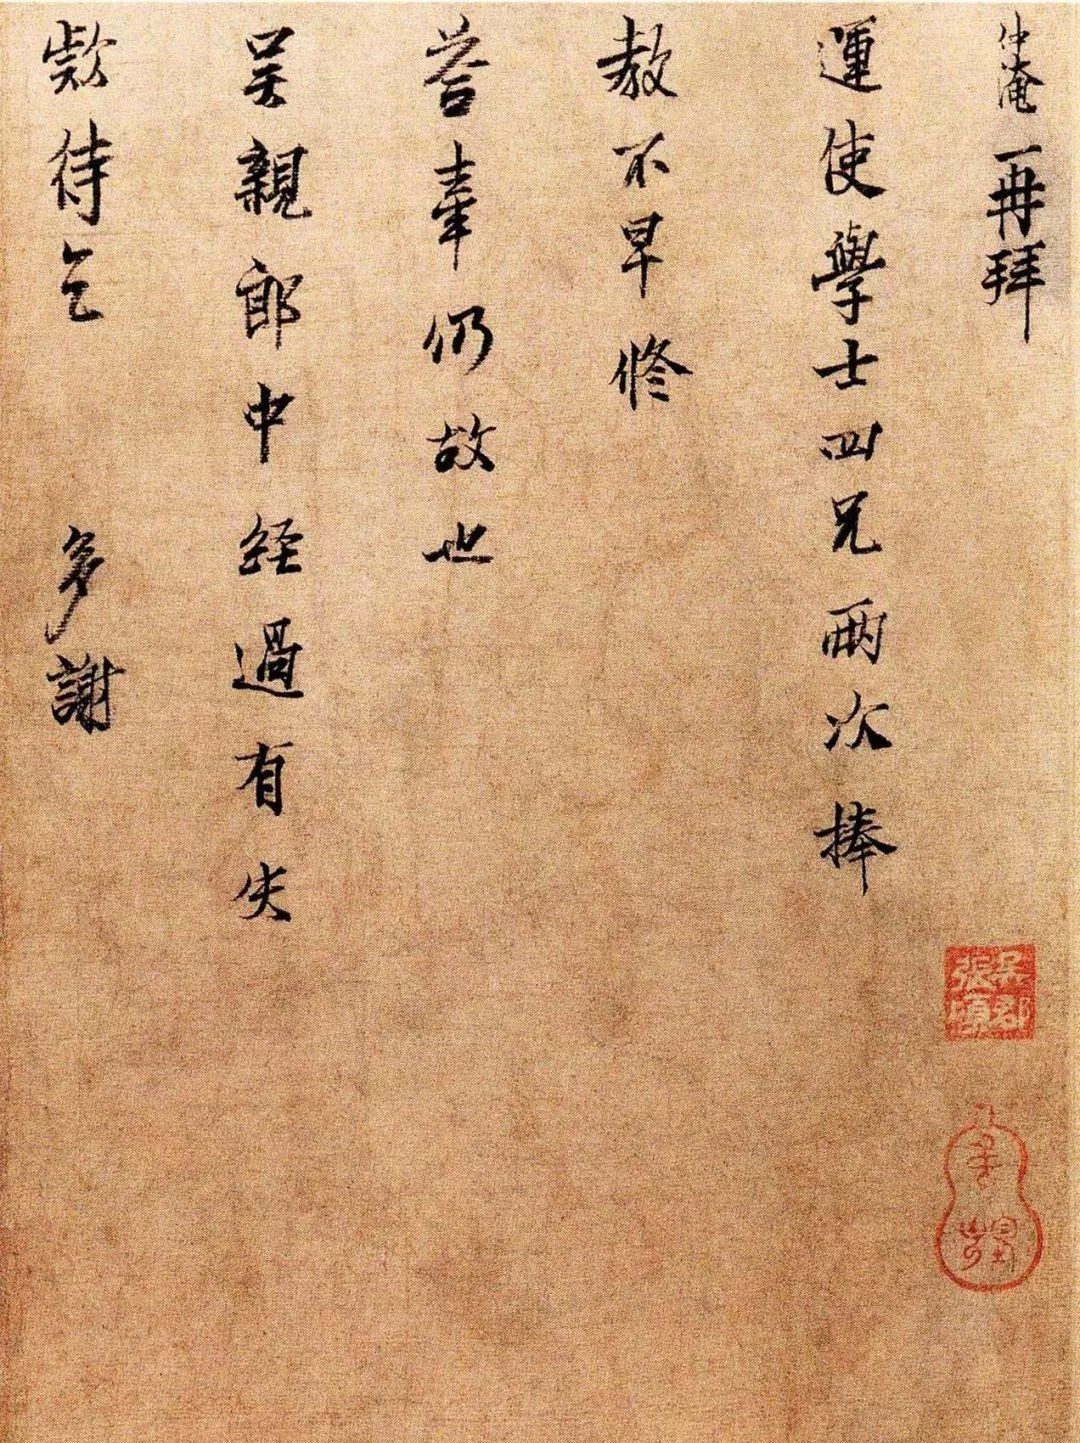 仲淹再拜
運使學士四兄兩次捧
教不早修
荅牽仍故也
吴親郎中経過有失
欵待乞 多謝
吳郡